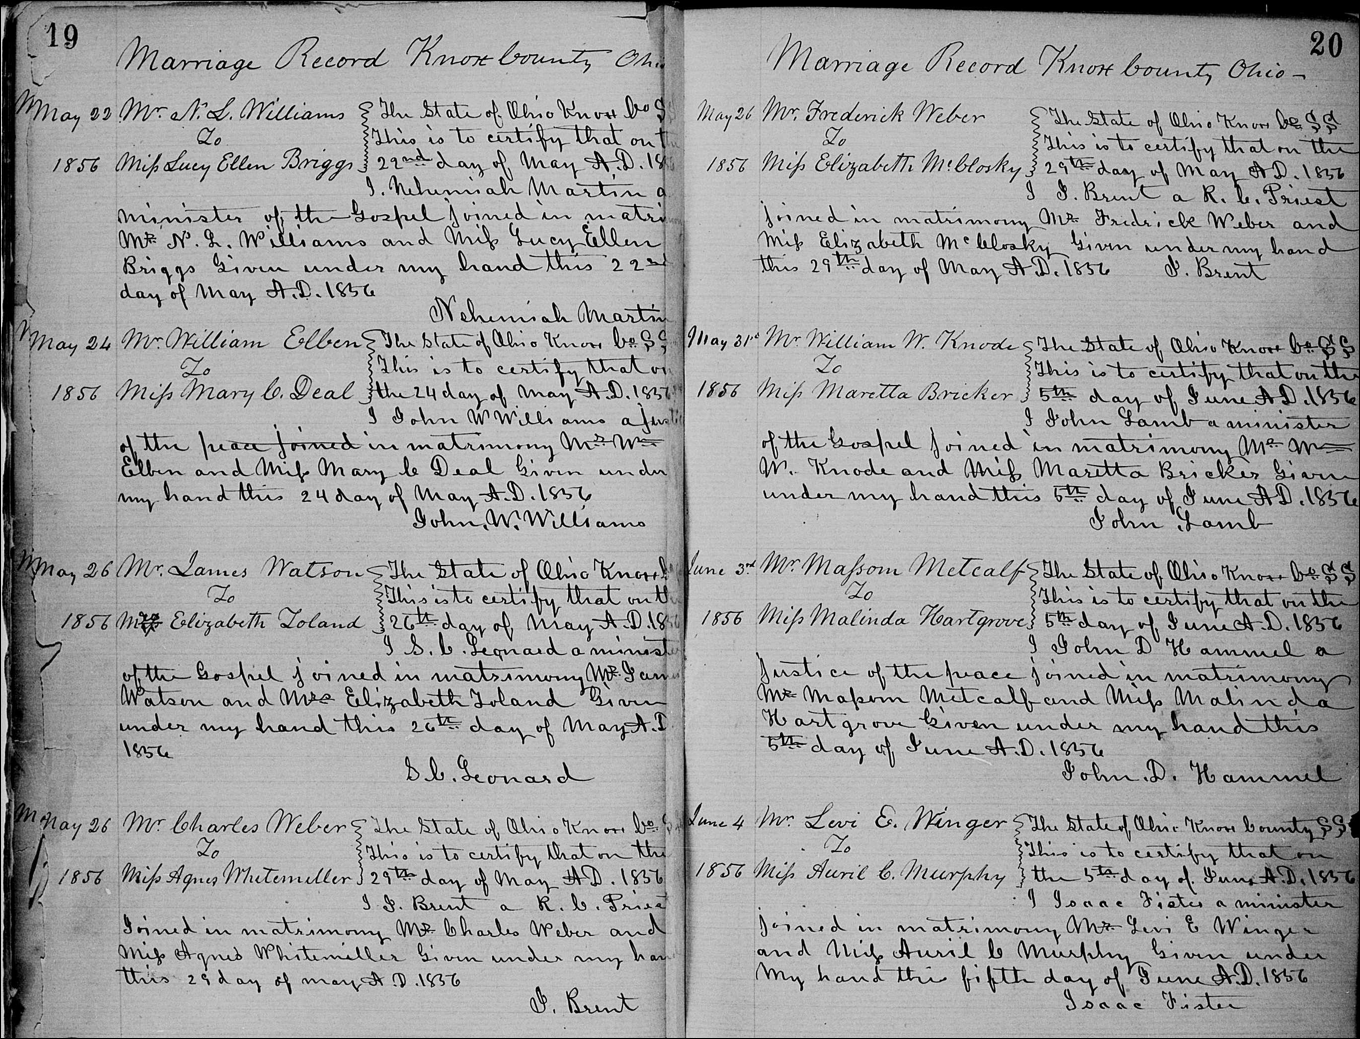 19
Marriage Record Knox County Ohio
May 22 Mr. N. L. Williams The State of Ohio Knox Co S
To This is to certify that on
1856 Miss Lucy Ellen Briggs 22nd day of May A.D. 18
I. Nehemiah Martin a
minister of the Gospel joined in matri
Mr. N. L. Williams and Miss Lucy Ellen
Briggs Given under my hand this 22nd
day of May A.D. 1856
Nehemiah Martin
May 24 Mr William Elben The State of Ohio Knox Co. SS
To This is to certify that on
1856 Miss Mary C. Deal the 24 day of May A.D. 1856
I John W Williams a Jus
of the peace joined in matrimony Mr. Wm
Elben and Miss Mary C Deal Given under
my hand this 24 day of May A.D. 1856
John. W. Williams
May 26 Mr. James Watson The State of Ohio Knox
To This is to certify that on th
1856 Elizabeth Toland 26th day of May A.D 18
I S. C. Leonard a minist
of the Gospel joined in matrimony Mr. Jam
Watson and Mrs Elizabeth Toland Given
under my hand this 26th day of May A.D
1856
S C. Leonard
May 26 Mr Charles Weber The State of Ohio Knox Co. S
To This is to certify that on the
1856 Miss Agnes Whitemiller 29th day of May A.D. 1856
I J. Brent a R. C. Priest
Joined in matrimony Mr Charles Weber and
Miss Agnes Whitemiller Given under my han
this 29 day of may A D. 1856
J. Brent
20
Marriage Record Knox County Ohio
May 26 Mr. Frederick Weber The State of Ohio Knox Co SS
To This is to certify that on the
1856 Miss Elizabeth McClosky 29th day of May A.D. 1856
I J. Brent a R. C. Priest
joined in matrimony Mr. Fredrick Weber and
Miss Elizabeth McClosky Given under my hand
this 29th day of May A.D. 1856 J. Brent
May 31st Mr William W. Knode The State of Ohio Knox Co SS
To This is to certify that on the
1856 Miss Maretta Bricker 5th day of June A.D. 1856
I John Lamb a minister
of the Gospel Joined in matrimony Mr Wm
W. Knode and Miss Maretta Bricker Given
under my hand this 5th day of June A.D. 1856
John Lamb
June 3rd Mr Massom Metcalf The State of Ohio Knox Co SS
To This is to certify that on the
1856 Miss Malinda Hartgrove 5th day of June A.D. 1856
I John D Hammel a
Justice of the peace joined in matrimony
Mr Massom Metcalf and Miss Malinda
Hartgrove Given under my hand this
5th day of June A.D. 1856
John. D. Hammel
June 4 Mr. Levi E. Winger The State of Ohio Knox County SS
To This is to certify that on
1856 Miss Auril C. Murphy the 5th day of June A.D. 1856
I Isaac Fister a minister
Joined in matrimony Mr Levi E Winger
and Miss Auril C Murphy Given under
my hand this fifth day of June A.D. 1856
Isaac Fister